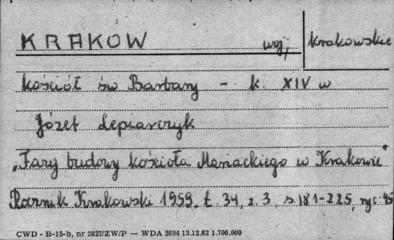 KRAKÓW woj, krakowskie
kościół św Barbary - k. XIV w
Józef Lepiarczyk
"Fazy budowy kościoła Mariackiego w Krakowie"
Rocznik Krakowski 1959, t. 34, z. 3, s 181-225, ryc 45
CWD - B-15-b, nr 2827/ZW/P — WDA 2694 13.12.62 1.700.000